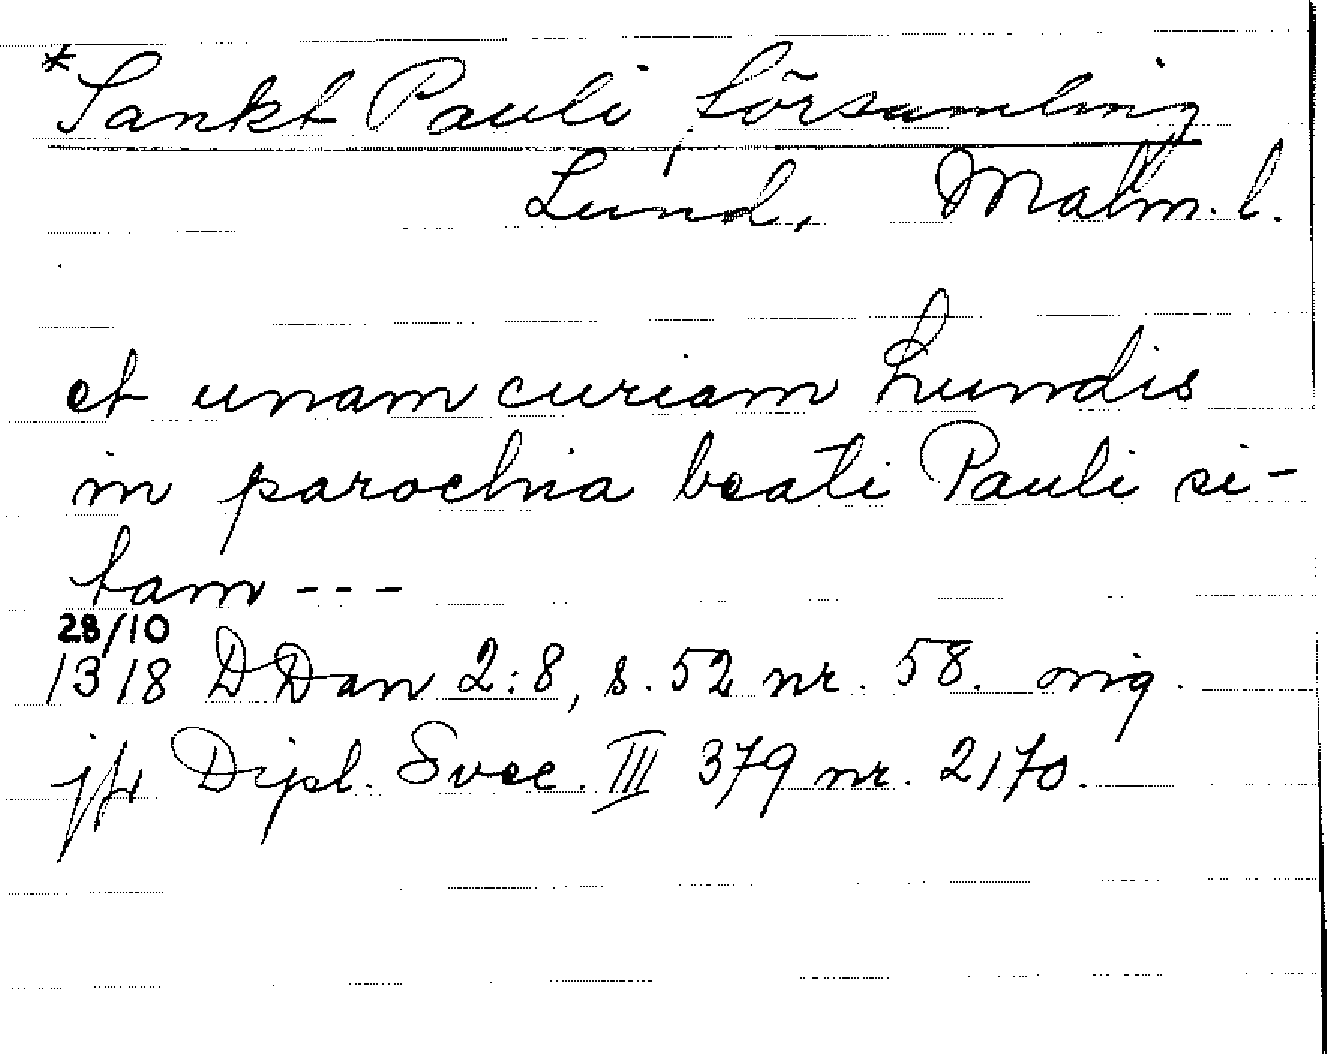 *Sankt Pauli församling
Lund, Malm. l.
et unam curiam Lundis
in parochia beati Pauli si-
tam ---
28/10
1318 DDan 2:8, s. 52 nr. 58. orig.
jfr Dipl. Svec. III 379 nr. 2170.